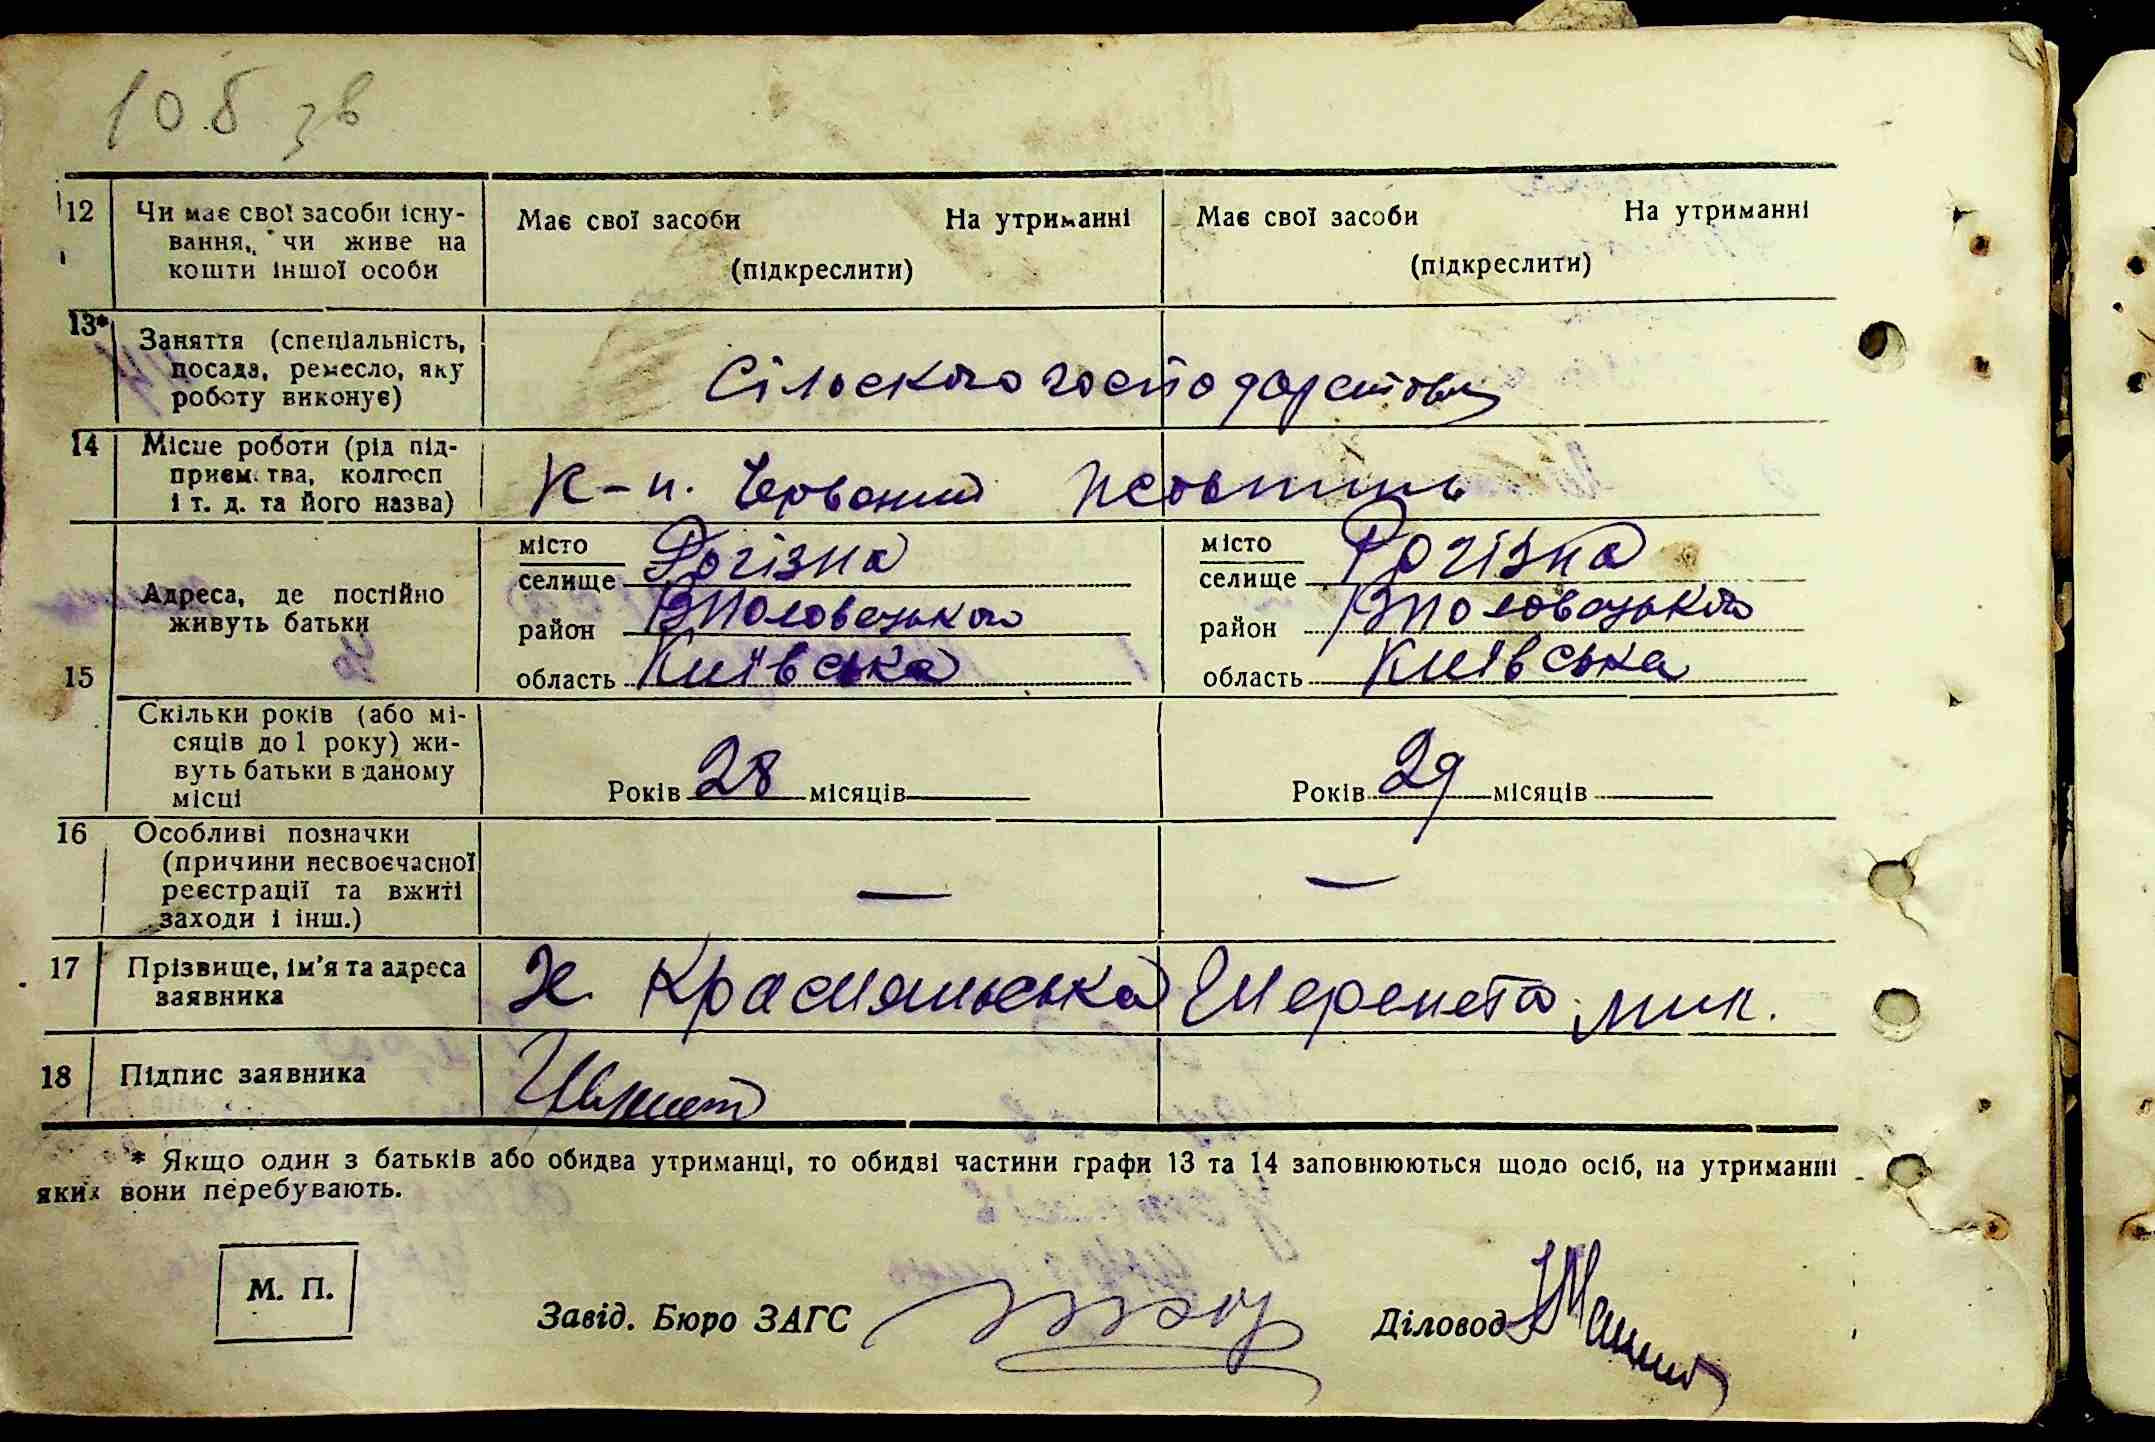 10 б зв
12 Чи має свої засоби існу- Має свої засоби На утриманні Має свої засоби На утриманні
вання, чи живе на
кошти іншої особи (підкреслити) (підкреслити)
13* Заняття (спеціальність,
посада, ремесло, яку Сільського господарства
роботу виконує)
14 Місце роботи (рід під-
приємства, колгосп К-п. Червоний Жовтень
і т. д. та його назва)
місто Рогізна місто Рогізна
селище селище
Адреса, де постійно
живуть батьки район Володарського район Володарського
15 область Київська область Київська
Скільки років (або мі-
сяців до 1 року) жи-
вуть батьки в даному Років 28 місяців Років 29 місяців
місці
16 Особливі позначки
(причини несвоєчасної
реєстрації та вжиті — —
заходи і інш.)
17 Прізвище, ім'я та адреса Х. Шеремета Мик.
заявника
18 Підпис заявника
* Якщо один з батьків або обидва утриманці, то обидві частини графи 13 та 14 заповнюються щодо осіб, на утриманні
яких вони перебувають.
М. П.
Завід. Бюро ЗАГС Діловод